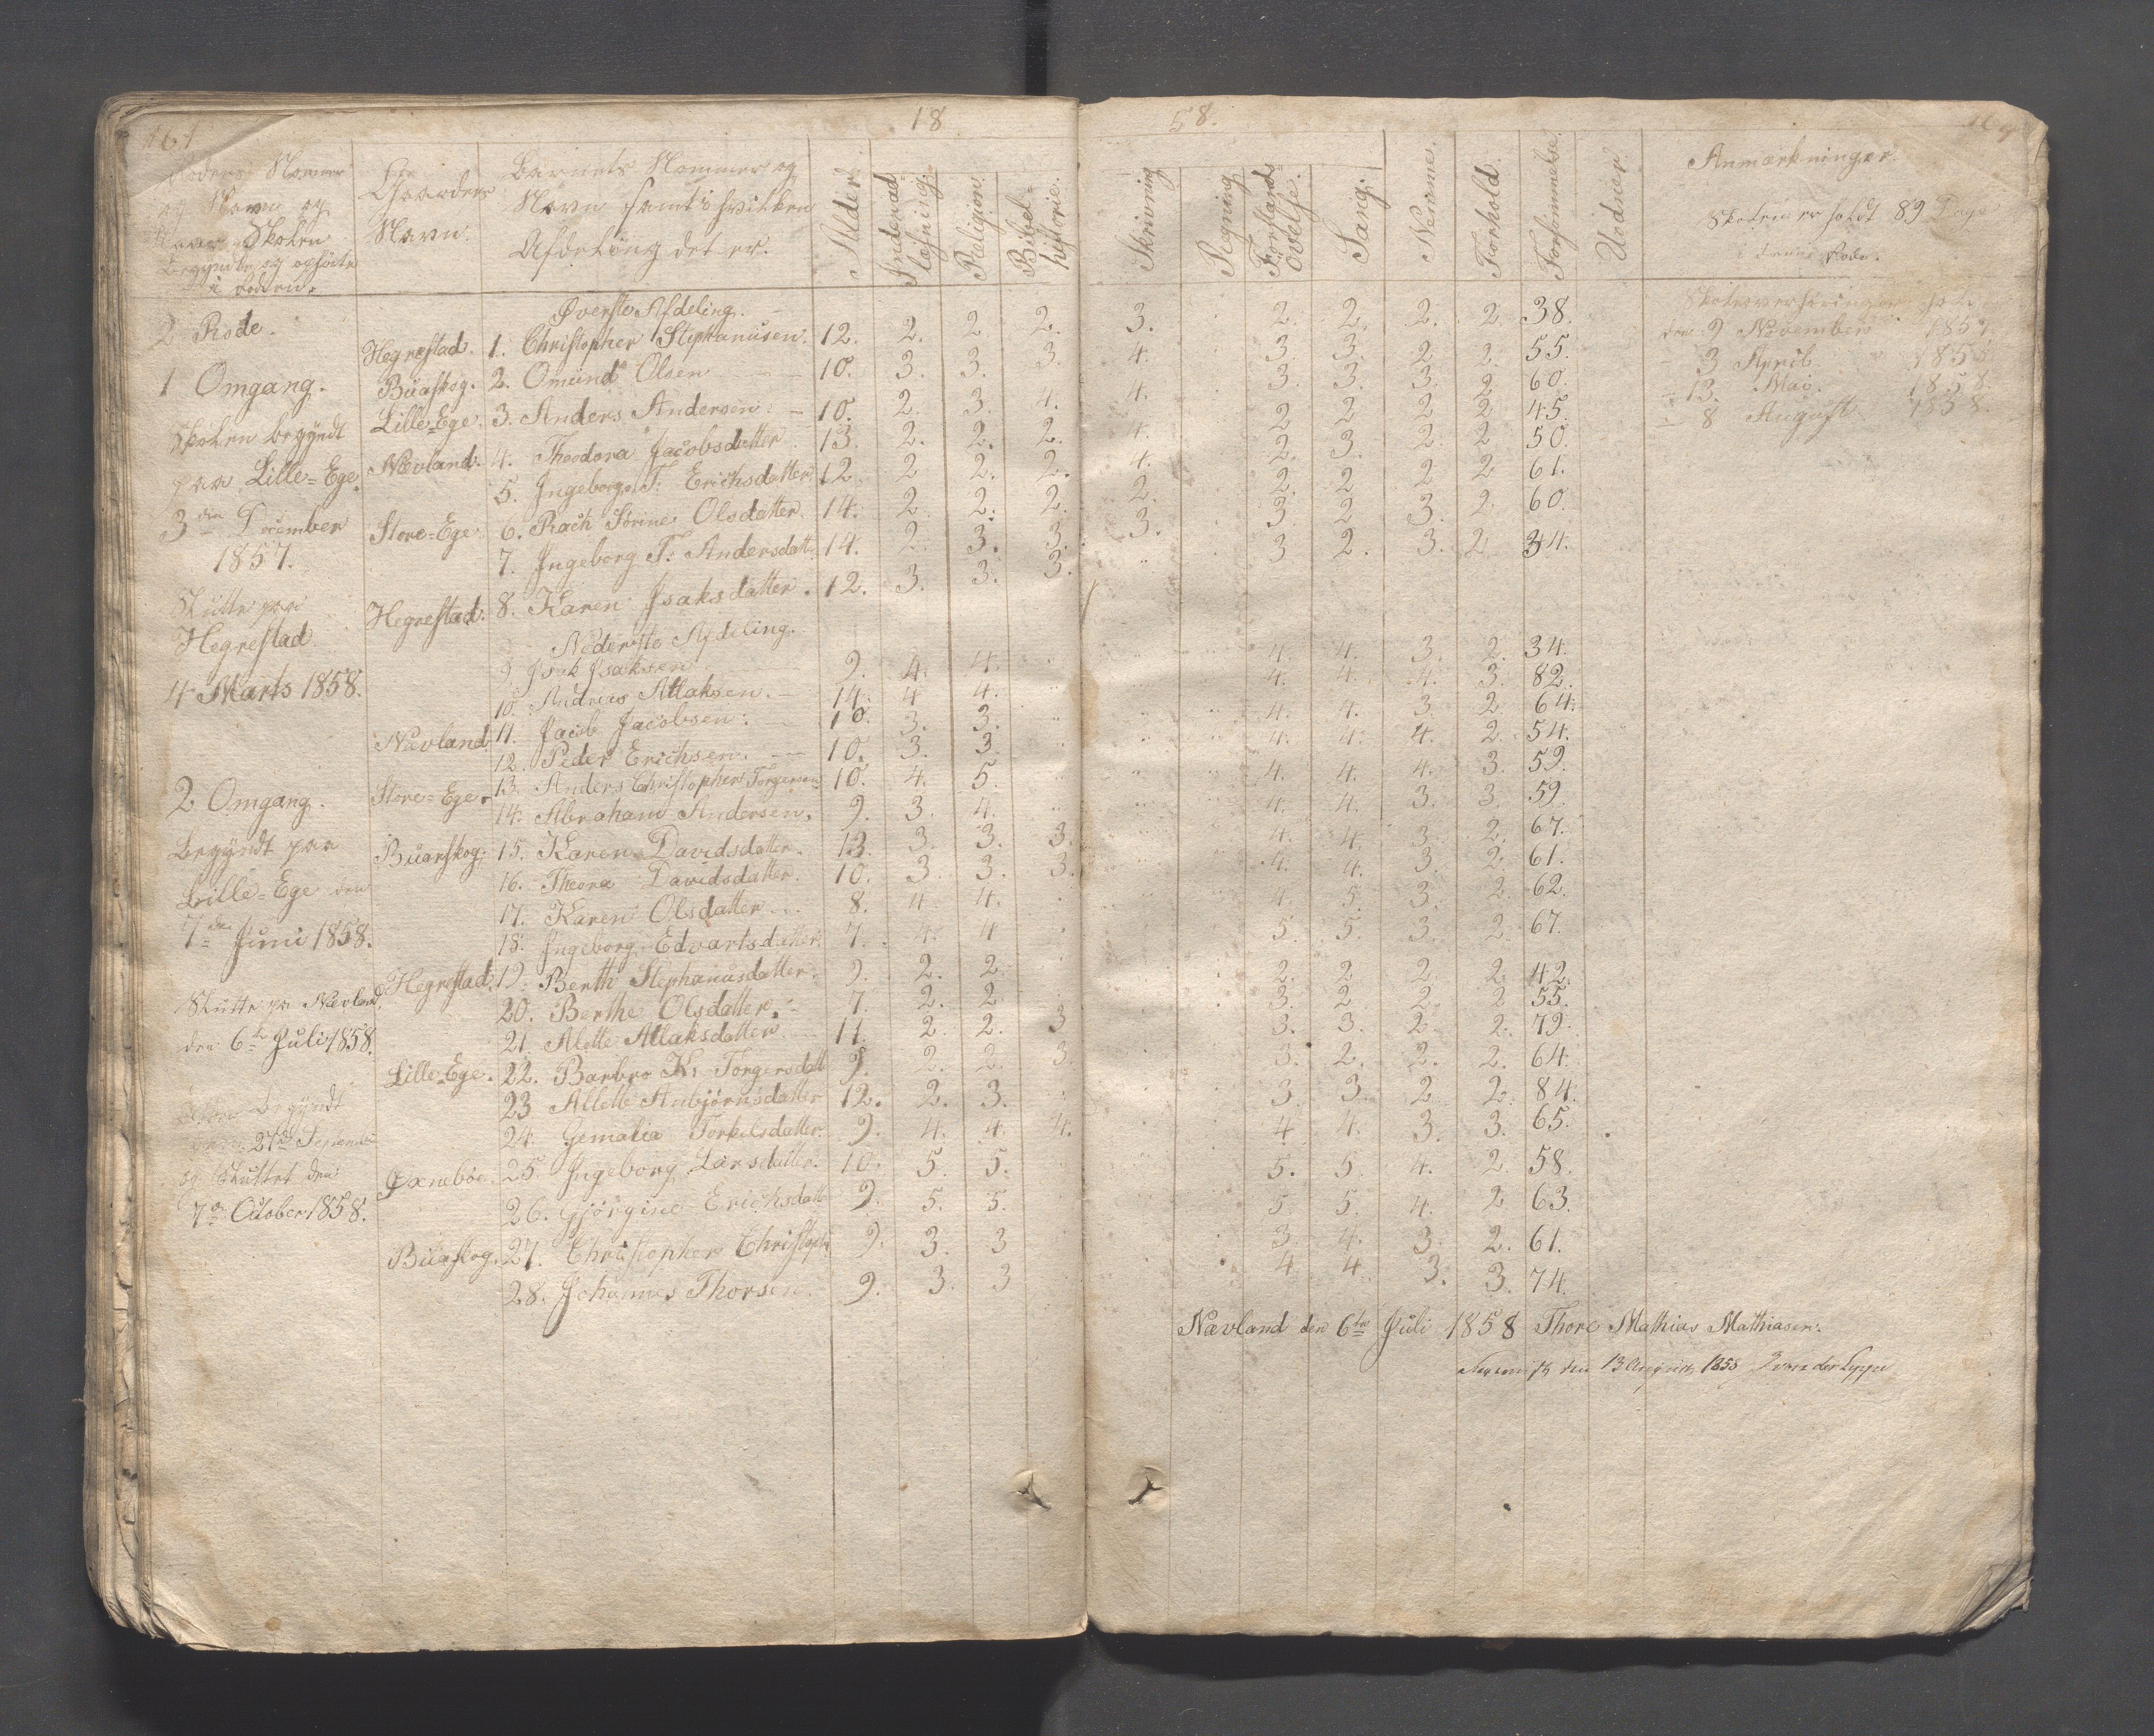 161
18
58.
Roders Nommer
og Navn og
naar Skolen
begyndte og ophörte
i Roden.
Gaardens
Navn.
Barnets Nommer og
Navn samt i hvilken
Afdeling det er.
Alder
Indenad
læsning.
Religion.
Bibel-
historie.
Skrivning
Regning
Forstands
Övelse.
Sang.
Nemme.
Forhold.
Forsömmelse.
Udnier.
Anmærkninger.
Skolen er holdt 89 Dage
i denne Rode.
2 Rode.
Øverste Afdeling.
Hegrestad. 1. Christopher Stephanusen. 12. 2. 2 2. 3. 2. 2. 2. 2. 38.
1 Omgang. Buaskog. 2. Omund Olsen 10. 3. 3. 3. 4. 3. 3. 2 2. 55.
Lille-Ege. 3. Anders Andersen. 10. 2. 3. 4. 4. 3. 3. 3. 2 60.
Skolen begyndt Nævland. 4. Theodora Jacobsdatter 13. 2. 2. 2. 4. 2 2 2 2 45.
paa Lille-Ege 5. Ingeborg T. Erichsdatter 12. 2 2. 2. 4. 2. 3. 2. 2 50.
3die December Store-Ege. 6. Rach Sörine Olsdatter. 14. 2 2. 2. 2. 2. 2 2 2 61.
1857. 7. Ingeborg T. Andersdatt. 14. 2. 3. 3. 3. 3. 2 3. 2. 60.
Sluttet paa
Hegrestad. Hegrestad. 8. Karen Isaksdatter. 12. 3. 3. 3. 3 2. 3. 2 34.
Nederste Afdeling.
4 Marts 1858. 9. Isak Isaksen 9. 4. 4. 4. 4. 3. 2. 34.
10. Andreas Atlaksen. 14. 4 4. 4. 4. 4. 3. 82.
Nævland 11. Jacob Jacobsen. 10. 3. 3. 4. 4. 3. 2 64.
12. Peder Erichsen. 10. 3. 3. 4. 4. 4. 2. 54.
2 Omgang. Store-Ege. 13. Anders Christopher Torgersen 10. 4. 5. 4. 4. 4. 3. 59.
14. Abraham Andersen. 9. 3. 4. 4. 4. 3. 3. 59.
begyndt paa Buarskog. 15. Karen Davidsdatter. 13. 3. 3. 3. 4. 4. 3. 2. 67.
Lille-Ege den 16. Theona Davidsdatter. 10. 3. 3. 3. 4. 4. 3. 2. 61.
7de Juni 1858. 17. Karen Olsdatter 8. 4 4. 4. 5. 3. 2. 62.
18. Ingeborg Edvartsdatter. 7. 4. 4 5. 5. 3. 2. 67.
Hegrestad. 19. Berth Stephanusdatter. 9. 2. 2. 2. 2 2 2 42.
Sluttet paa Nævland 20. Berthe Olsdatter. 7. 2. 2 3. 2 2. 2 55.
den 6te Juli 1858. 21. Alette Atlaksdatter 11. 2. 2. 3 3. 3. 2. 2. 79.
Lille-Ege. 22. Barbro K. Torgersdatt 9. 2. 2. 3. 3. 2. 2. 2. 64.
begyndt 23 Allette Anbjörnsdatter 12. 2. 3. 3. 3. 2 2. 84.
27de 24. Gemalia Torkelsdatter. 9. 4. 4. 4. 4 4. 3. 3. 65.
og Sluttet den Øxneböe. 25. Ingeborg Larsdatter. 10. 5. 5. 5. 5. 4. 2. 58.
7de October 1858. 26. Gjörgine Erichsdatt 9. 5. 5. 5. 5. 4. 2 63.
Buaskog. 27. Christopher 9. 3. 3 3. 4. 3. 2. 61.
28. Johannes Thorsen. 9. 3. 3 4 4 3. 3. 74.
den 9 November 1857.
3 April 1858
13. Mai 1858.
8 August 1858.
Nævland den 6te Juli 1858 Thore Mathias Mathiasen.
den 13 August 1858 von der Lippe